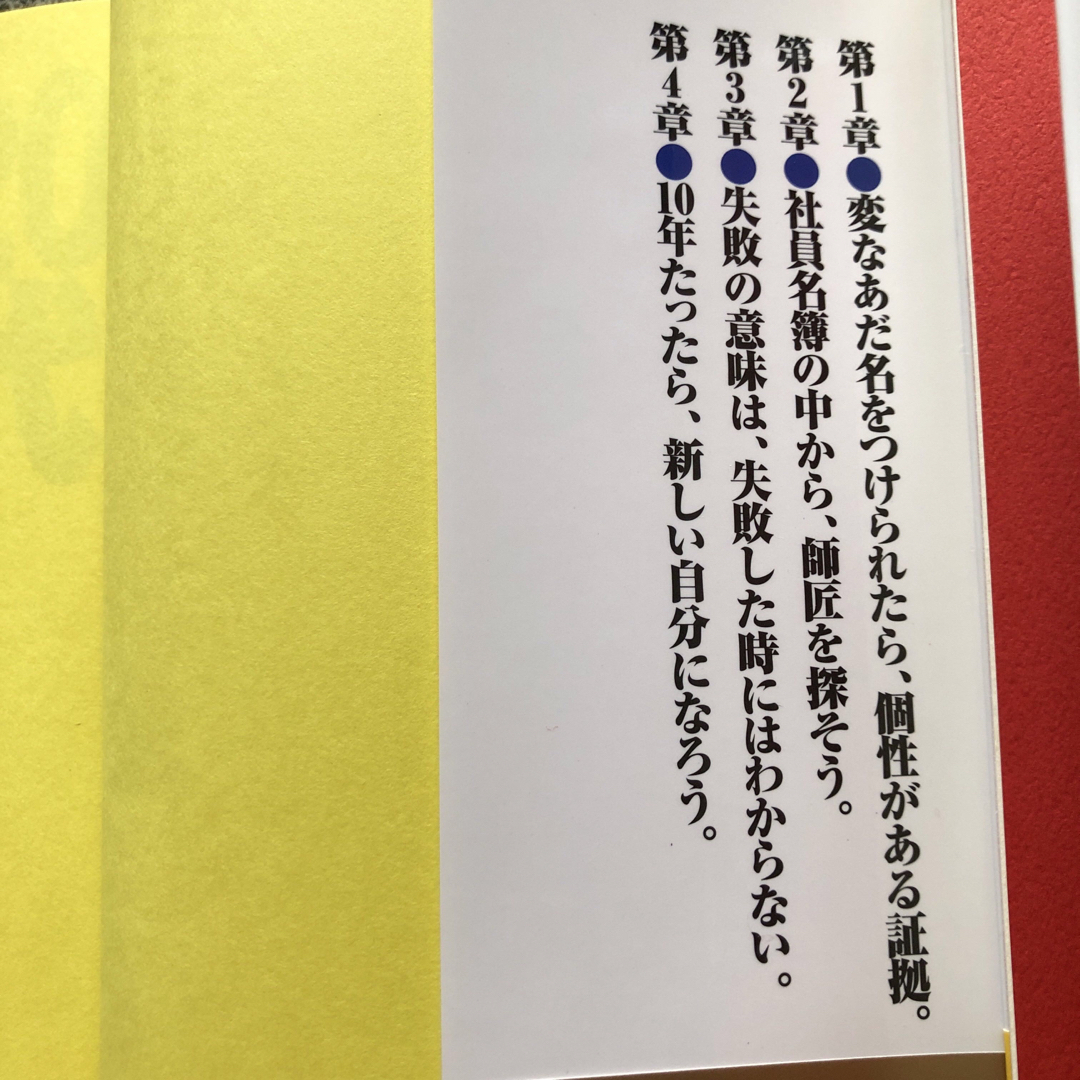 第1章●変なあだ名をつけられたら、個性がある証拠。
第2章●社員名簿の中から、師匠を探そう。
第3章●失敗の意味は、失敗した時にはわからない。
第4章●10年たったら、新しい自分になろう。